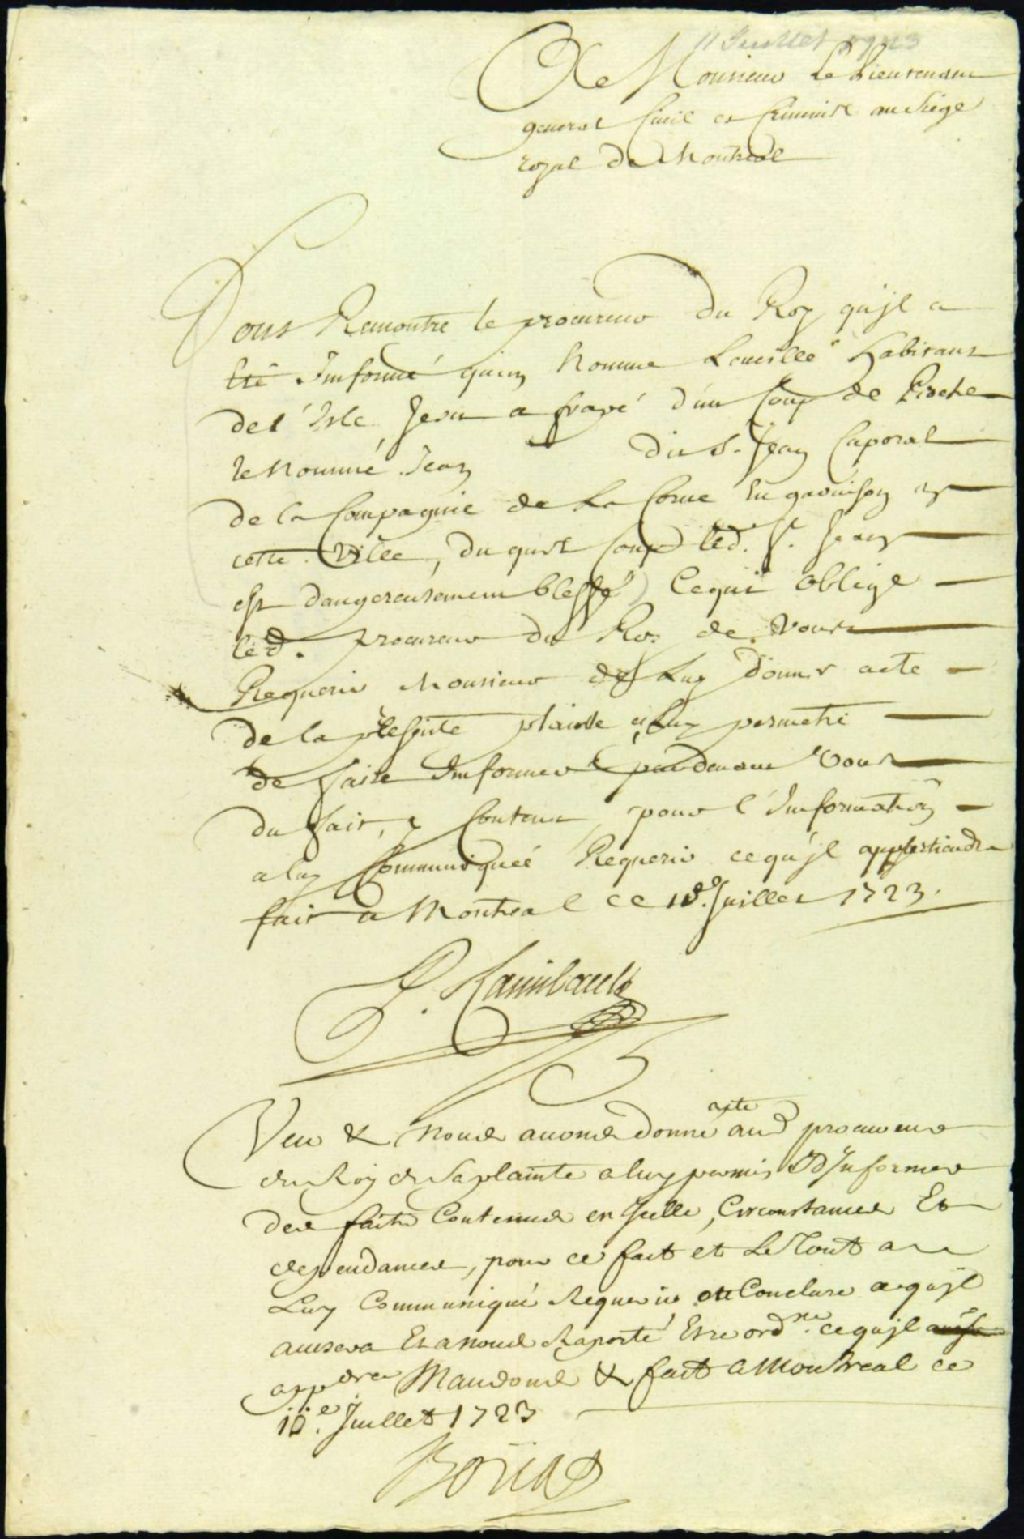 11 Juillet 1723
De Monsieur Le Lieutenant
general Civil et Criminel au siege
royal de Montreal
Vous Remontre le procureur du Roy qu'jl a
Eté Jnformé qu'un Nomme Habitant
de l'Isle Jesu a frapé d'un Coup de Pioche
le Nommé Jean dit St. Jean Caporal
de la Compagnie de La Corne En garnison en
cette Ville, du quel Coup led. St. Jean
est dangereusement blessé, Ce qui oblige
led. procureur du Roy de Vous
Requerir Monsieur de Luy donner acte
de la presente plainte et luy permetre
de faire Jnformer pardevant Vous
du fait, y Contenu, pour l'Jnformation
a luy Communiquée Requerir ce qu'jl appartiendra
fait a Montreal ce Juillet 1723.
P. Raimbault
Veu & Nous avons donné acte aud procureur
du Roy de Sa plainte a luy permis d'Jnformer
des faits Contenus en Jcelle, Circonstances Et
dependances, pour ce fait et Le Tout a
Luy Communiqué Requerir ou Conclure ce qu'jl
avisera Et a nous Raporté Estre ordne. ce qu'jl
appdra Mandons & fait a Montreal ce
11e. Juillet 1723
Boüat